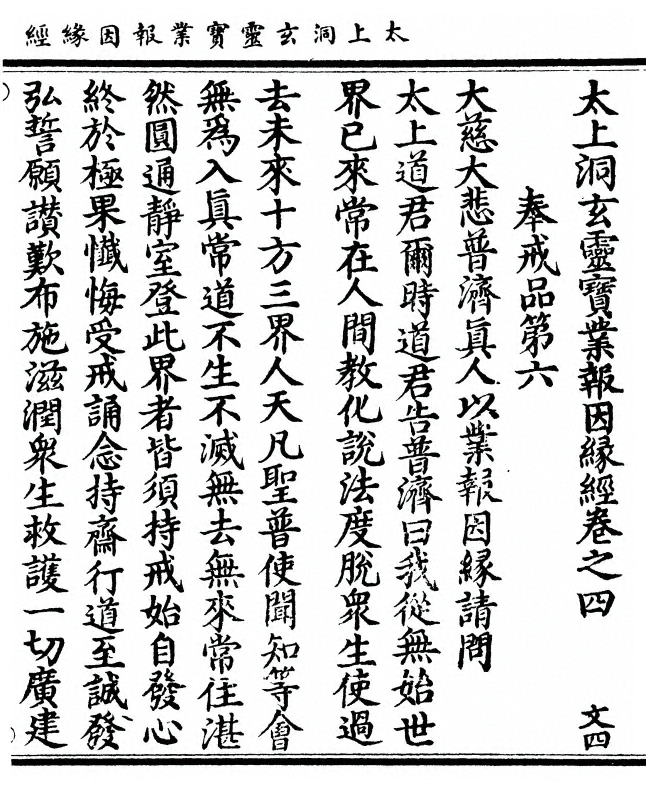 太上洞玄靈寶業報因緣經
太上洞玄靈寶業報因緣經卷之四 文四
奉戒品第六
大慈大悲普濟眞人以業報因緣請問
太上道君爾時道君告普濟曰我從無始世
界已來常在人間教化說法度脫衆生使過
去未來十方三界人天凡聖普使聞知等會
無爲入眞常道不生不滅無去無來常住湛
然圓通靜室登此界者皆須持戒始自發心
終於極果懺悔受戒誦念持齋行道至誠發
弘誓願讃歎布施滋潤衆生救護一切廣建